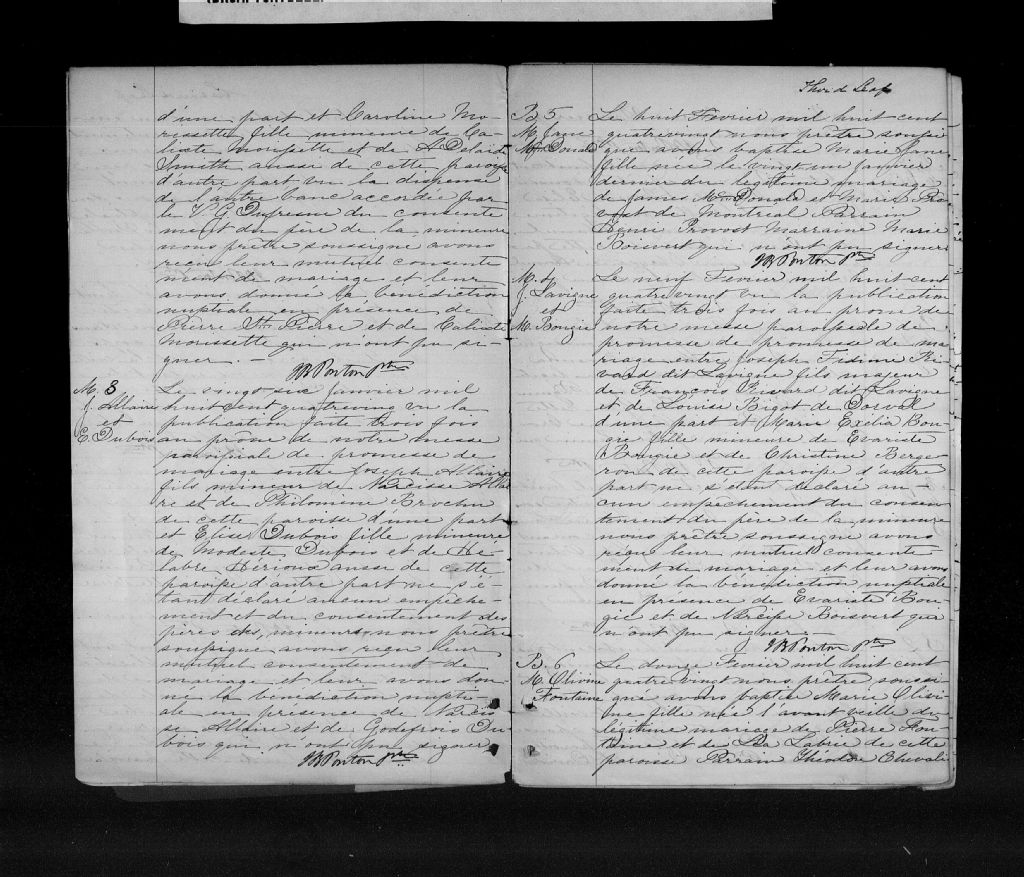 d'une part et Caroline Mo-
rissette fille mineure de Ca-
lixte Morissette et de Adelaide
Smith aussi de cette paroisse
d'autre part vu la dispense
de l'autre banc accordée par
le V G Dufresne du consente
ment du père de la mineure
nous prêtre soussigne avons
recu leur mutuel consente
ment de mariage et leur
avons donné la bénédiction
nuptiale en présence de
Pierre St Pierre et de Calixte
Morissette qui n'ont pu si-
gner. -
JB Ponton ptre
M. 3
J. Allaire
et
E. Dubois
Le vingt six Janvier mil
huit cent quatreving vu la
publication faite trois fois
au prône de notre messe
paroissiale de promesse de
mariage entre Joseph Allaire
fils mineur de Narcisse Allai
re et de Philomine Brochu
de cette paroisse d'une part
et Elise Dubois fille mineure
de Modeste Dubois et de
Herioux aussi de cette
paroisse d'autre part ne s'é-
tant déclaré aucun empêche-
ment et du consentement des
pères des mineurs, nous prêtre
soussigne avons reçu leur
mutuel consentement de
mariage et leur avons don-
né la bénédiction nupti-
ale en présence de Narcis
se Allaire et de Godefroid Du-
bois qui n ont pu signer
JB Ponton ptre
Third Leaf
B 5
M. Jane
McDonald
Le huit Fevrier mil huit cent
quatrevingt nous prêtre soussi
gné avons baptise Marie Jane
fille née le vingt un Janvier
dernier du légitime mariage
de James McDonald et Marie Pro
vost de Montreal Parrain
Henri Provost Marraine Marie
Boisvert qui n ont pu signer
JB Ponton ptre
M. 4
J. Lavigne
et
M. Bougie
Le neuf Fevrier mil huit cent
quatrevingt vu la publication
faite trois fois au prone de
notre messe paroissiale de
promesse de promesse de ma
riage entre Joseph Ri
vard dit Lavigne fils majeur
de François Rivard dit Lavigne
et de Louise Bigot de Dorval
d'une part et Marie Exelia Bou-
gie fille mineure de Evariste
Bougie et de Christine Berge-
ron de cette paroisse d'autre
part ne s'étant déclaré au-
cun empêchement du consen-
tement du père de la mineure
nous prêtre soussigne avons
reçu leur mutuel consente
ment de mariage et leur avons
donné la bénédiction nuptiale
en présence de Evariste Bou-
gie et de Narcisse Boisvert qui
n'ont pu signer -
JB Ponton ptre
B. 6
M. Olivine
Fontaine
Le douze Fevrier mil huit cent
quatre vingt nous prêtre soussi
gné avons baptise Marie Olivi
ne fille née l'avant veille du
légitime mariage de Pierre Fon
taine et de Labrie de cette
paroisse Parrain Théodore Chevali